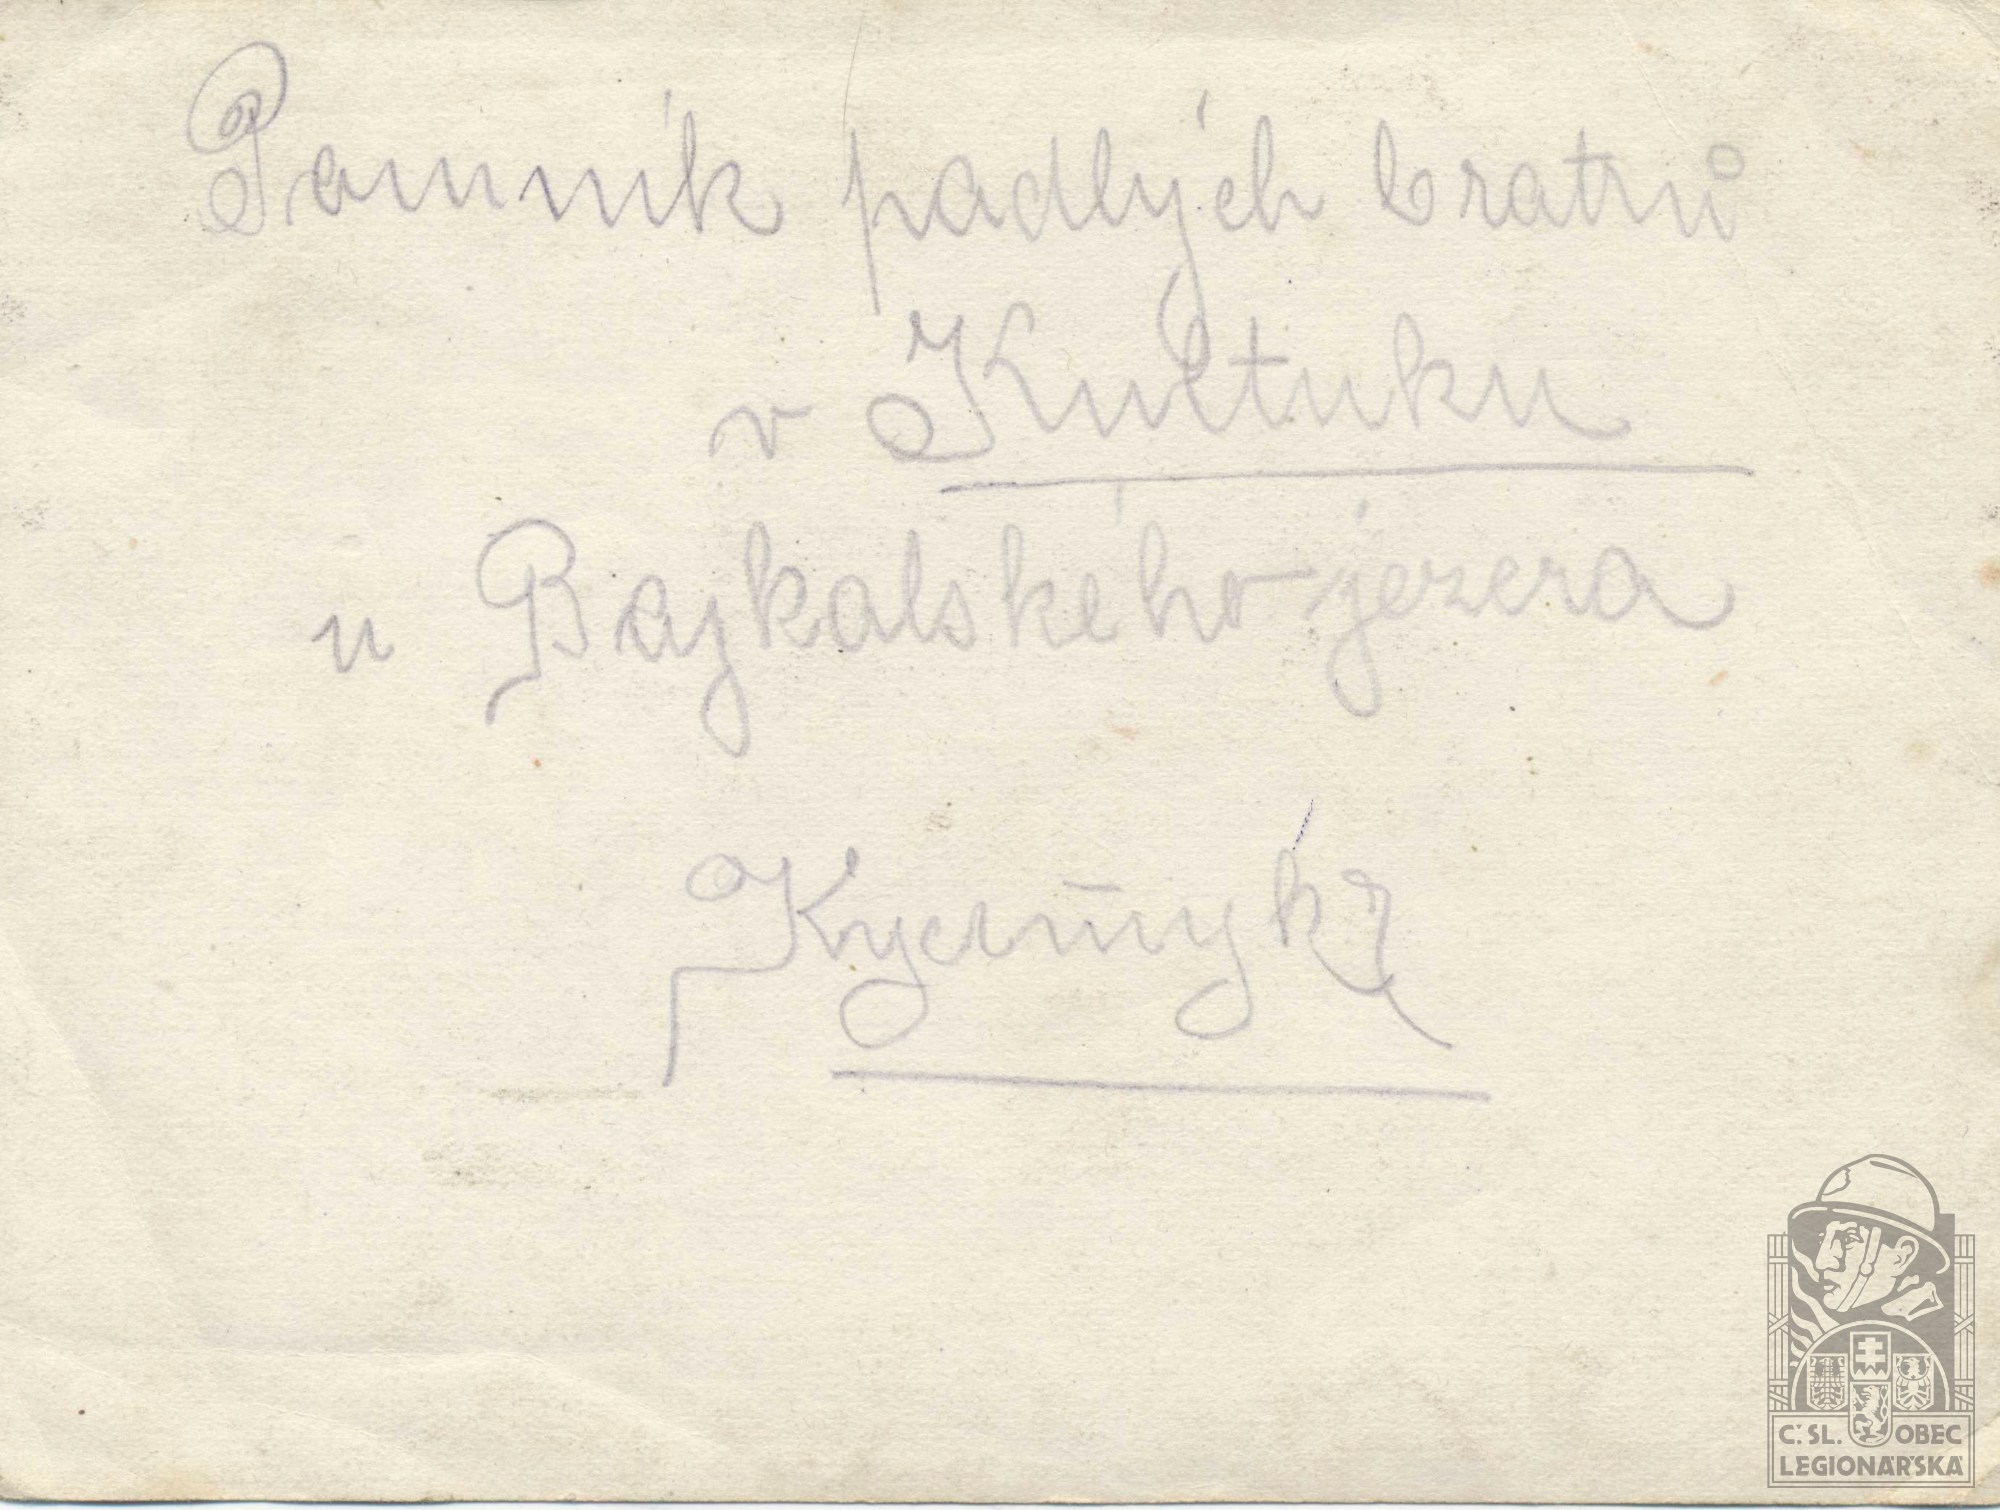 Pamník padlých bratrů
v Kultuku
u Bajkalského jezera
Č. SL. OBEC
LEGIONÁŘSKÁ